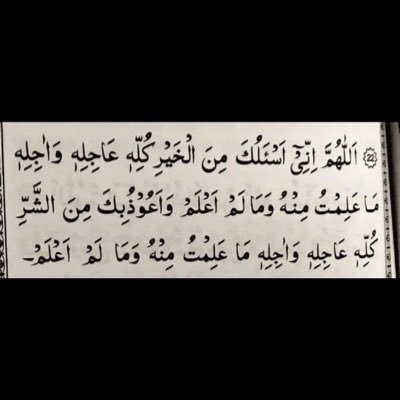 22 اَللّٰهُمَّ اِنِّيْٓ اَسْئَلُكَ مِنَ الْخَيْرِ كُلِّهٖ عَاجِلِهٖ وَاٰجِلِهٖ
مَا عَلِمْتُ مِنْهُ وَمَا لَمْ اَعْلَمْ وَاَعُوْذُبِكَ مِنَ الشَّرِّ
كُلِّهٖ عَاجِلِهٖ وَاٰجِلِهٖ مَا عَلِمْتُ مِنْهُ وَمَا لَمْ اَعْلَمْ۔